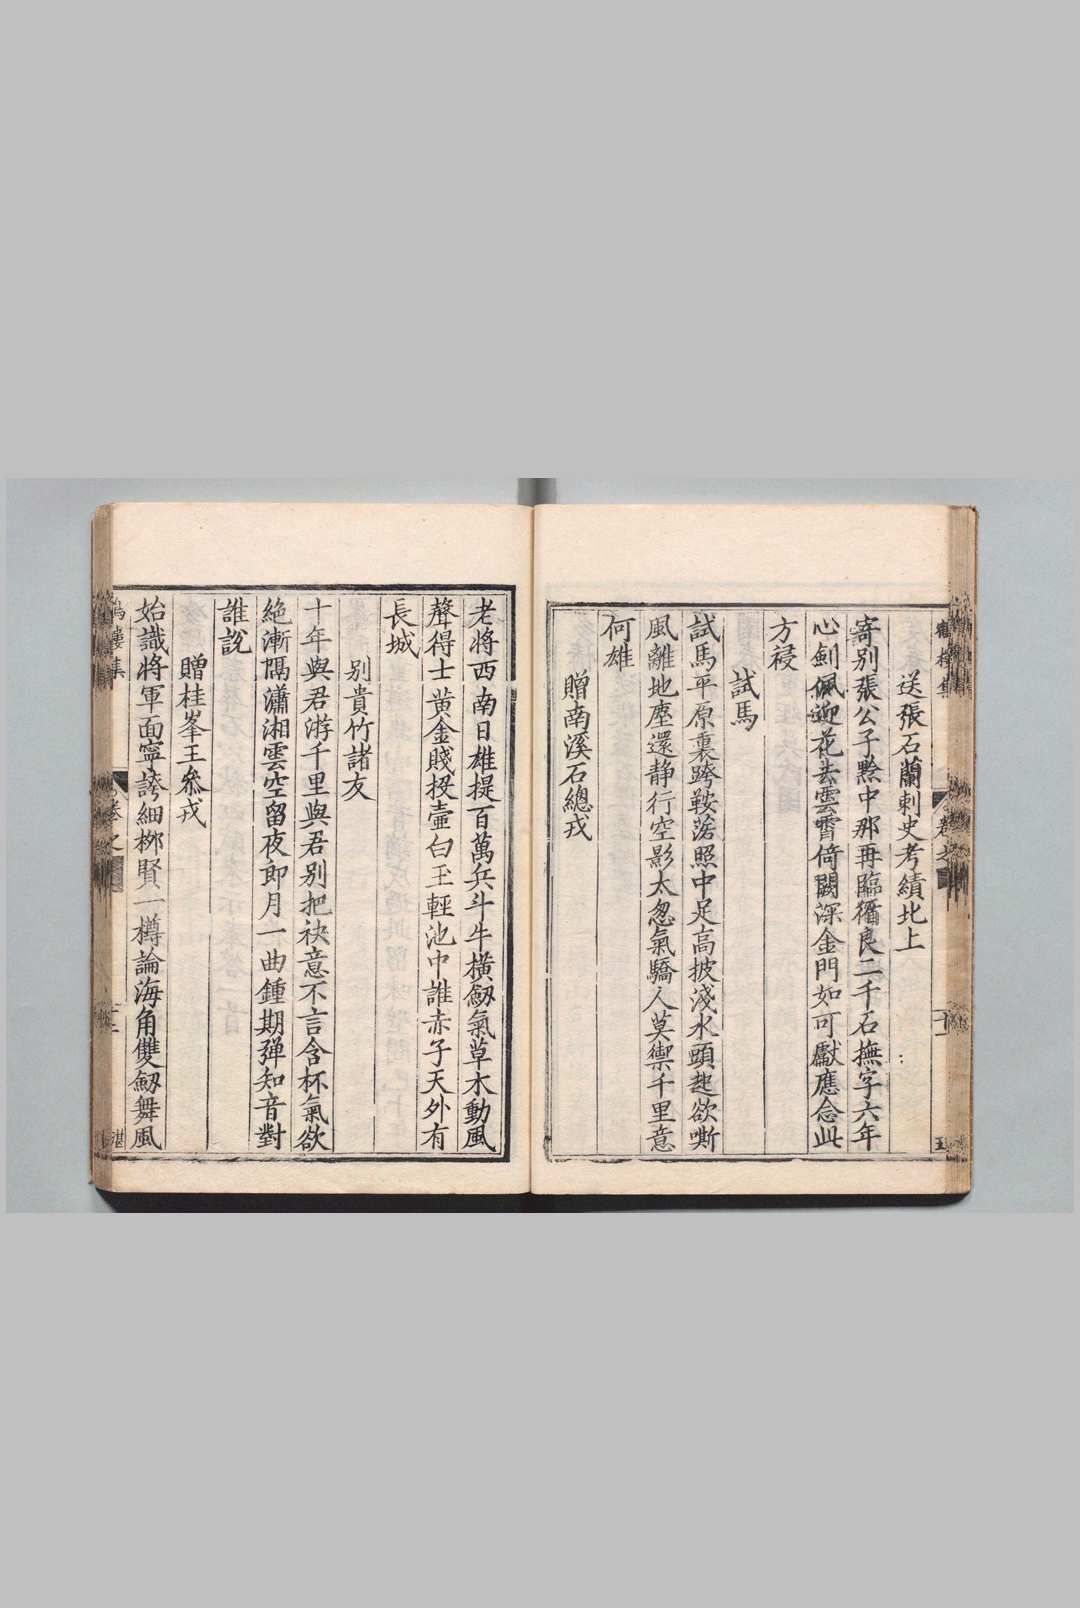 送張石蘭刺史考績北上
寄別張公子黔中那再臨循良二千石撫字六年
心劍佩迎花去雲霄倚闕深金門如可獻應念此
方祲
試馬
試馬平原裏跨鞍落照中足高披淺水頭趕欲嘶
風離地塵還静行空影太怱氣驕人莫禦千里意
何雄
贈南溪石總戎
老將西南日雄提百萬兵斗牛橫劒氣草木動風
聲得士黄金賤投壷白玉輕池中誰赤子天外有
長城
別貴竹諸友
十年與君游千里與君別把袂意不言含杯氣欲
絶漸隔瀟湘雲空留夜郎月一曲鍾期弾知音對
誰說
贈桂峯王叅戎
始識將軍面寧誇細柳賢一樽論海角雙劒舞風
卷之
十二
湛
卷之
十一
五